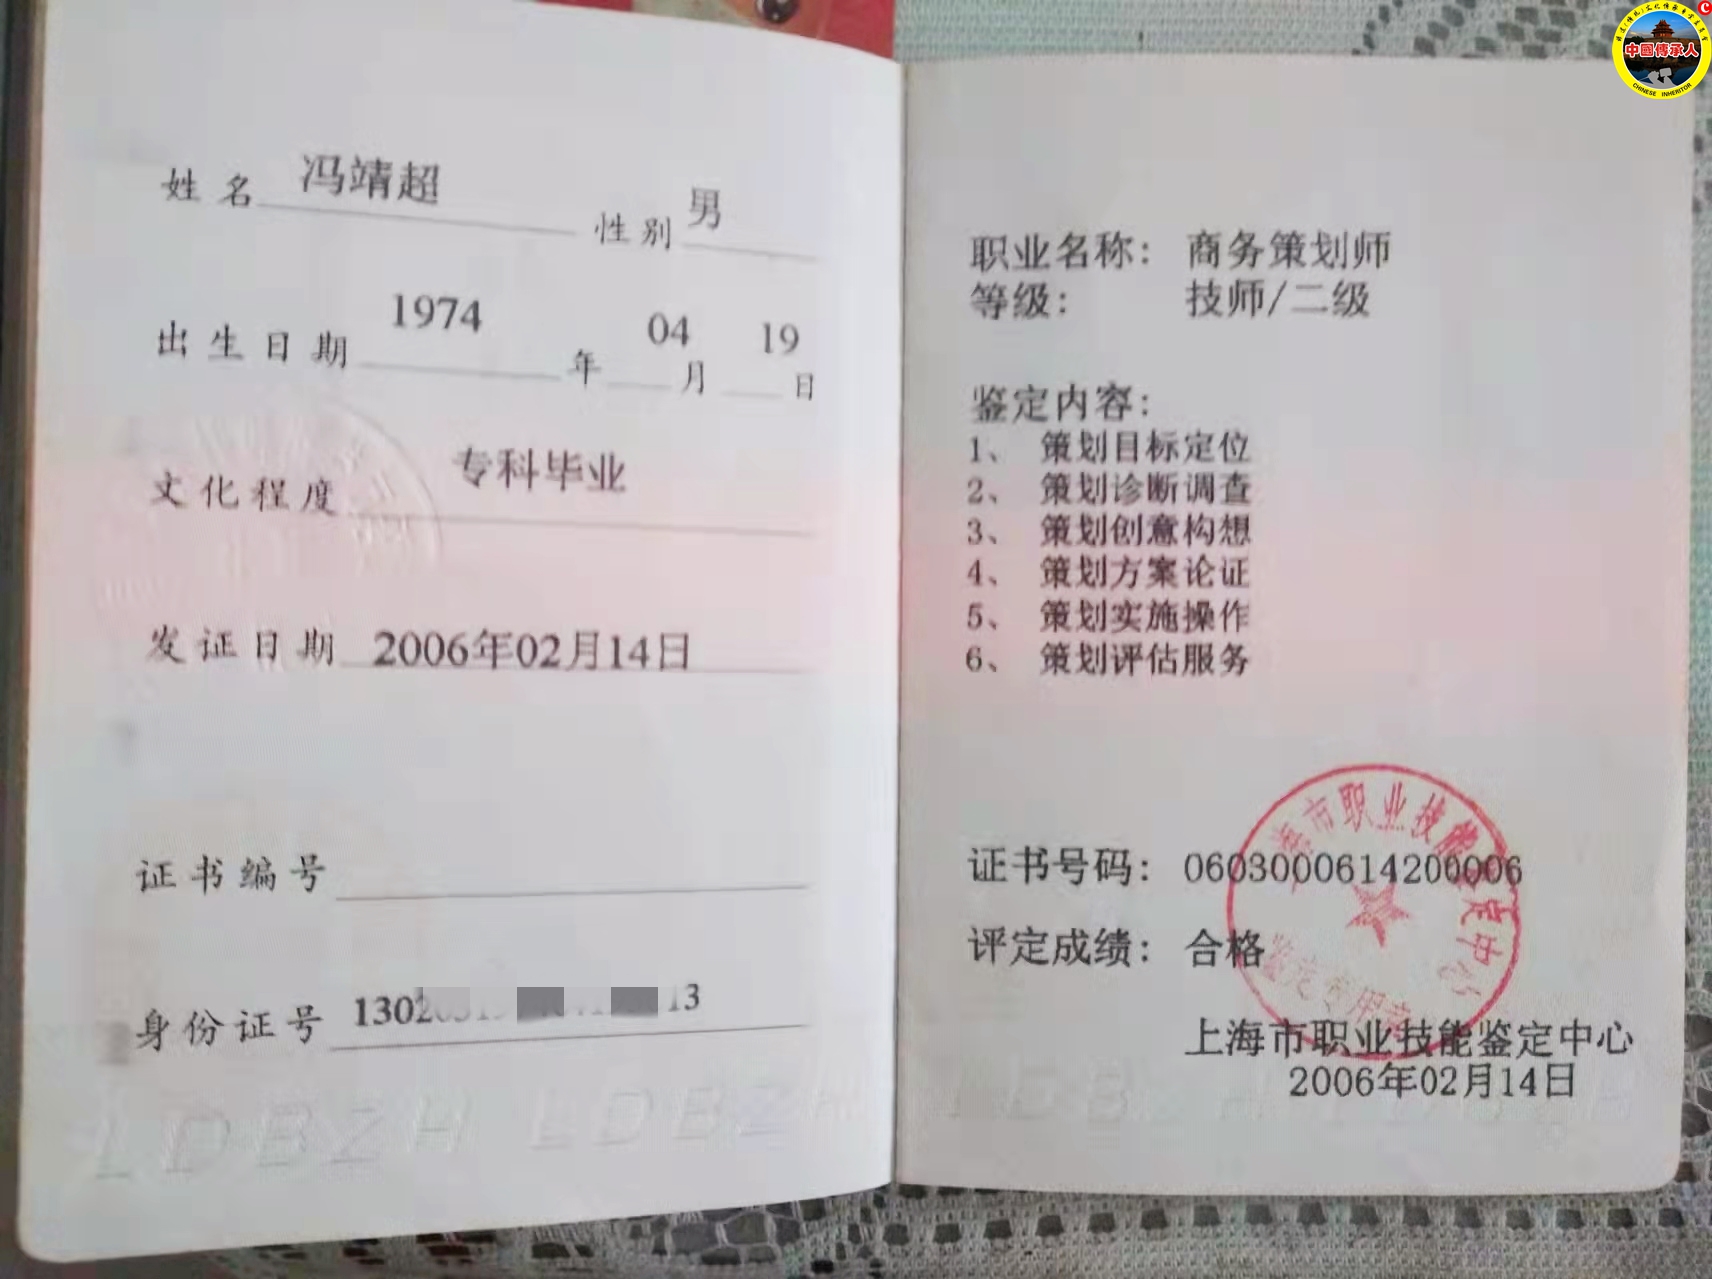 姓名 冯靖超 性别 男
出生日期 1974 年 04 月 19 日
文化程度 专科毕业
发证日期 2006年02月14日
证书编号
身份证号 1302 13
LDBZH LDBZH
职业名称： 商务策划师
等级： 技师/二级
鉴定内容：
1、 策划目标定位
2、 策划诊断调查
3、 策划创意构想
4、 策划方案论证
5、 策划实施操作
6、 策划评估服务
证书号码： 0603000614200006
评定成绩： 合格
上海市职业技能鉴定中心
2006年02月14日
海市职业技能鉴定中心
鉴定专用章
中國傳承人
CHINESE INHERITOR